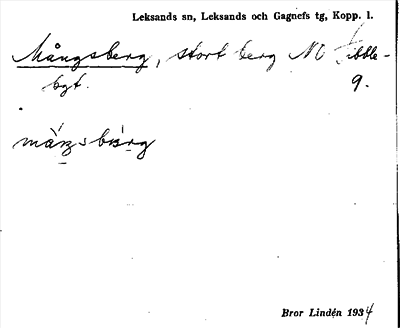 Leksands sn, Leksands och Gagnefs tg, Kopp. l.
Mångsberg, stort berg NO Tibble-
bgt. 9.
Bror Lindén 1934